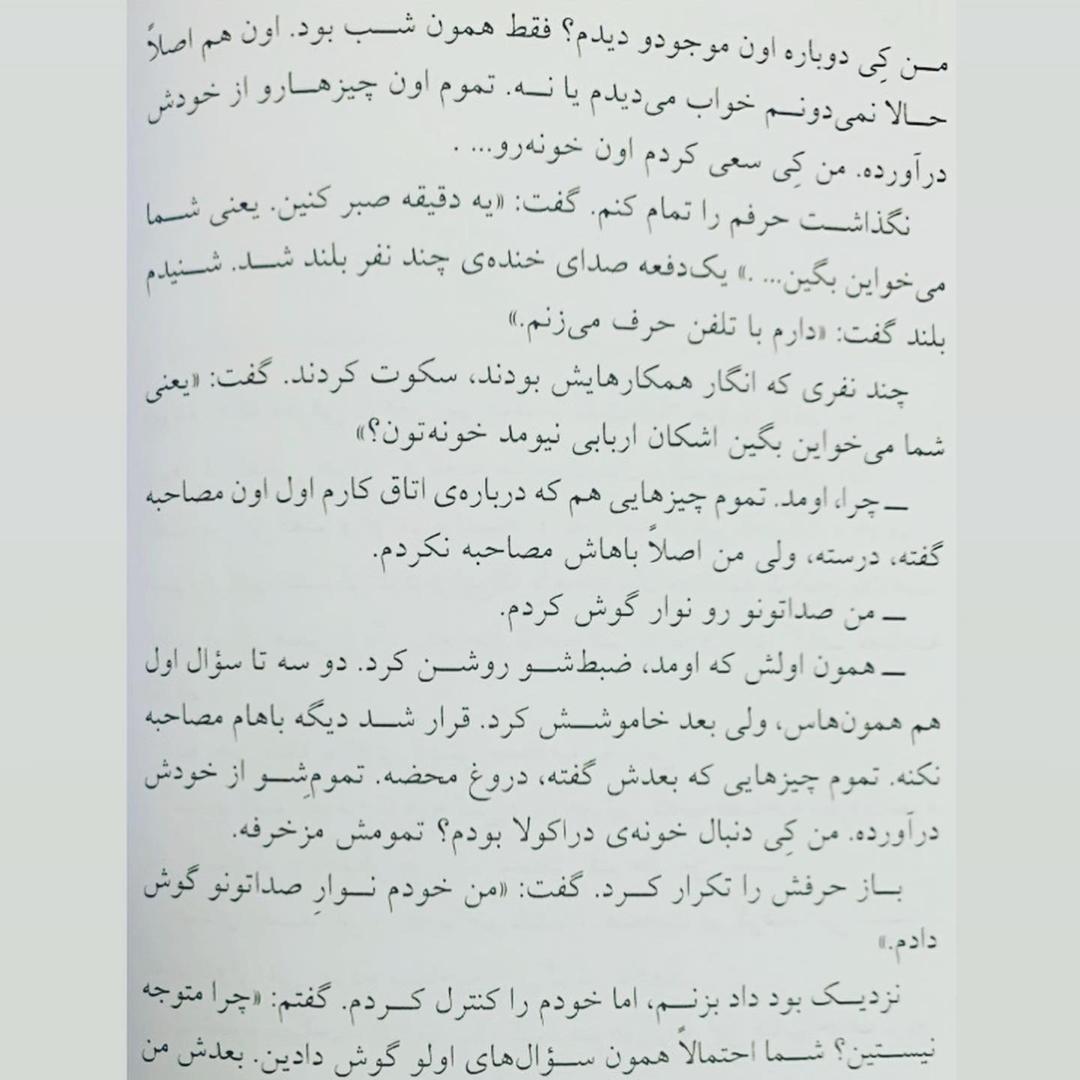 من کِی دوباره اون موجودو دیدم؟ فقط همون شب بود. اون هم اصلاً
حالا نمی‌دونم خواب می‌دیدم یا نه. تموم اون چیزهارو از خودش
درآورده. من کِی سعی کردم اون خونه‌رو... .
نگذاشت حرفم را تمام کنم. گفت: «یه دقیقه صبر کنین. یعنی شما
می‌خواین بگین... .» یک‌دفعه صدای خنده‌ی چند نفر بلند شد. شنیدم
بلند گفت: «دارم با تلفن حرف می‌زنم.»
چند نفری که انگار همکارهایش بودند، سکوت کردند. گفت: «یعنی
شما می‌خواین بگین اشکان اربابی نیومد خونه‌تون؟»
ـ چرا، اومد. تموم چیزهایی هم که درباره‌ی اتاق کارم اول اون مصاحبه
گفته، درسته، ولی من اصلاً باهاش مصاحبه نکردم.
ـ من صداتونو رو نوار گوش کردم.
ـ همون اولش که اومد، ضبط‌شو روشن کرد. دو سه تا سؤال اول
هم همون‌هاس، ولی بعد خاموشش کرد. قرار شد دیگه باهام مصاحبه
نکنه. تموم چیزهایی که بعدش گفته، دروغ محضه. تموم‌ِشو از خودش
درآورده. من کِی دنبال خونه‌ی دراکولا بودم؟ تمومش مزخرفه.
باز حرفش را تکرار کرد. گفت: «من خودم نوارِ صداتونو گوش
دادم.»
نزدیک بود داد بزنم، اما خودم را کنترل کردم. گفتم: «چرا متوجه
نیستین؟ شما احتمالاً همون سؤال‌های اولو گوش دادین. بعدش من